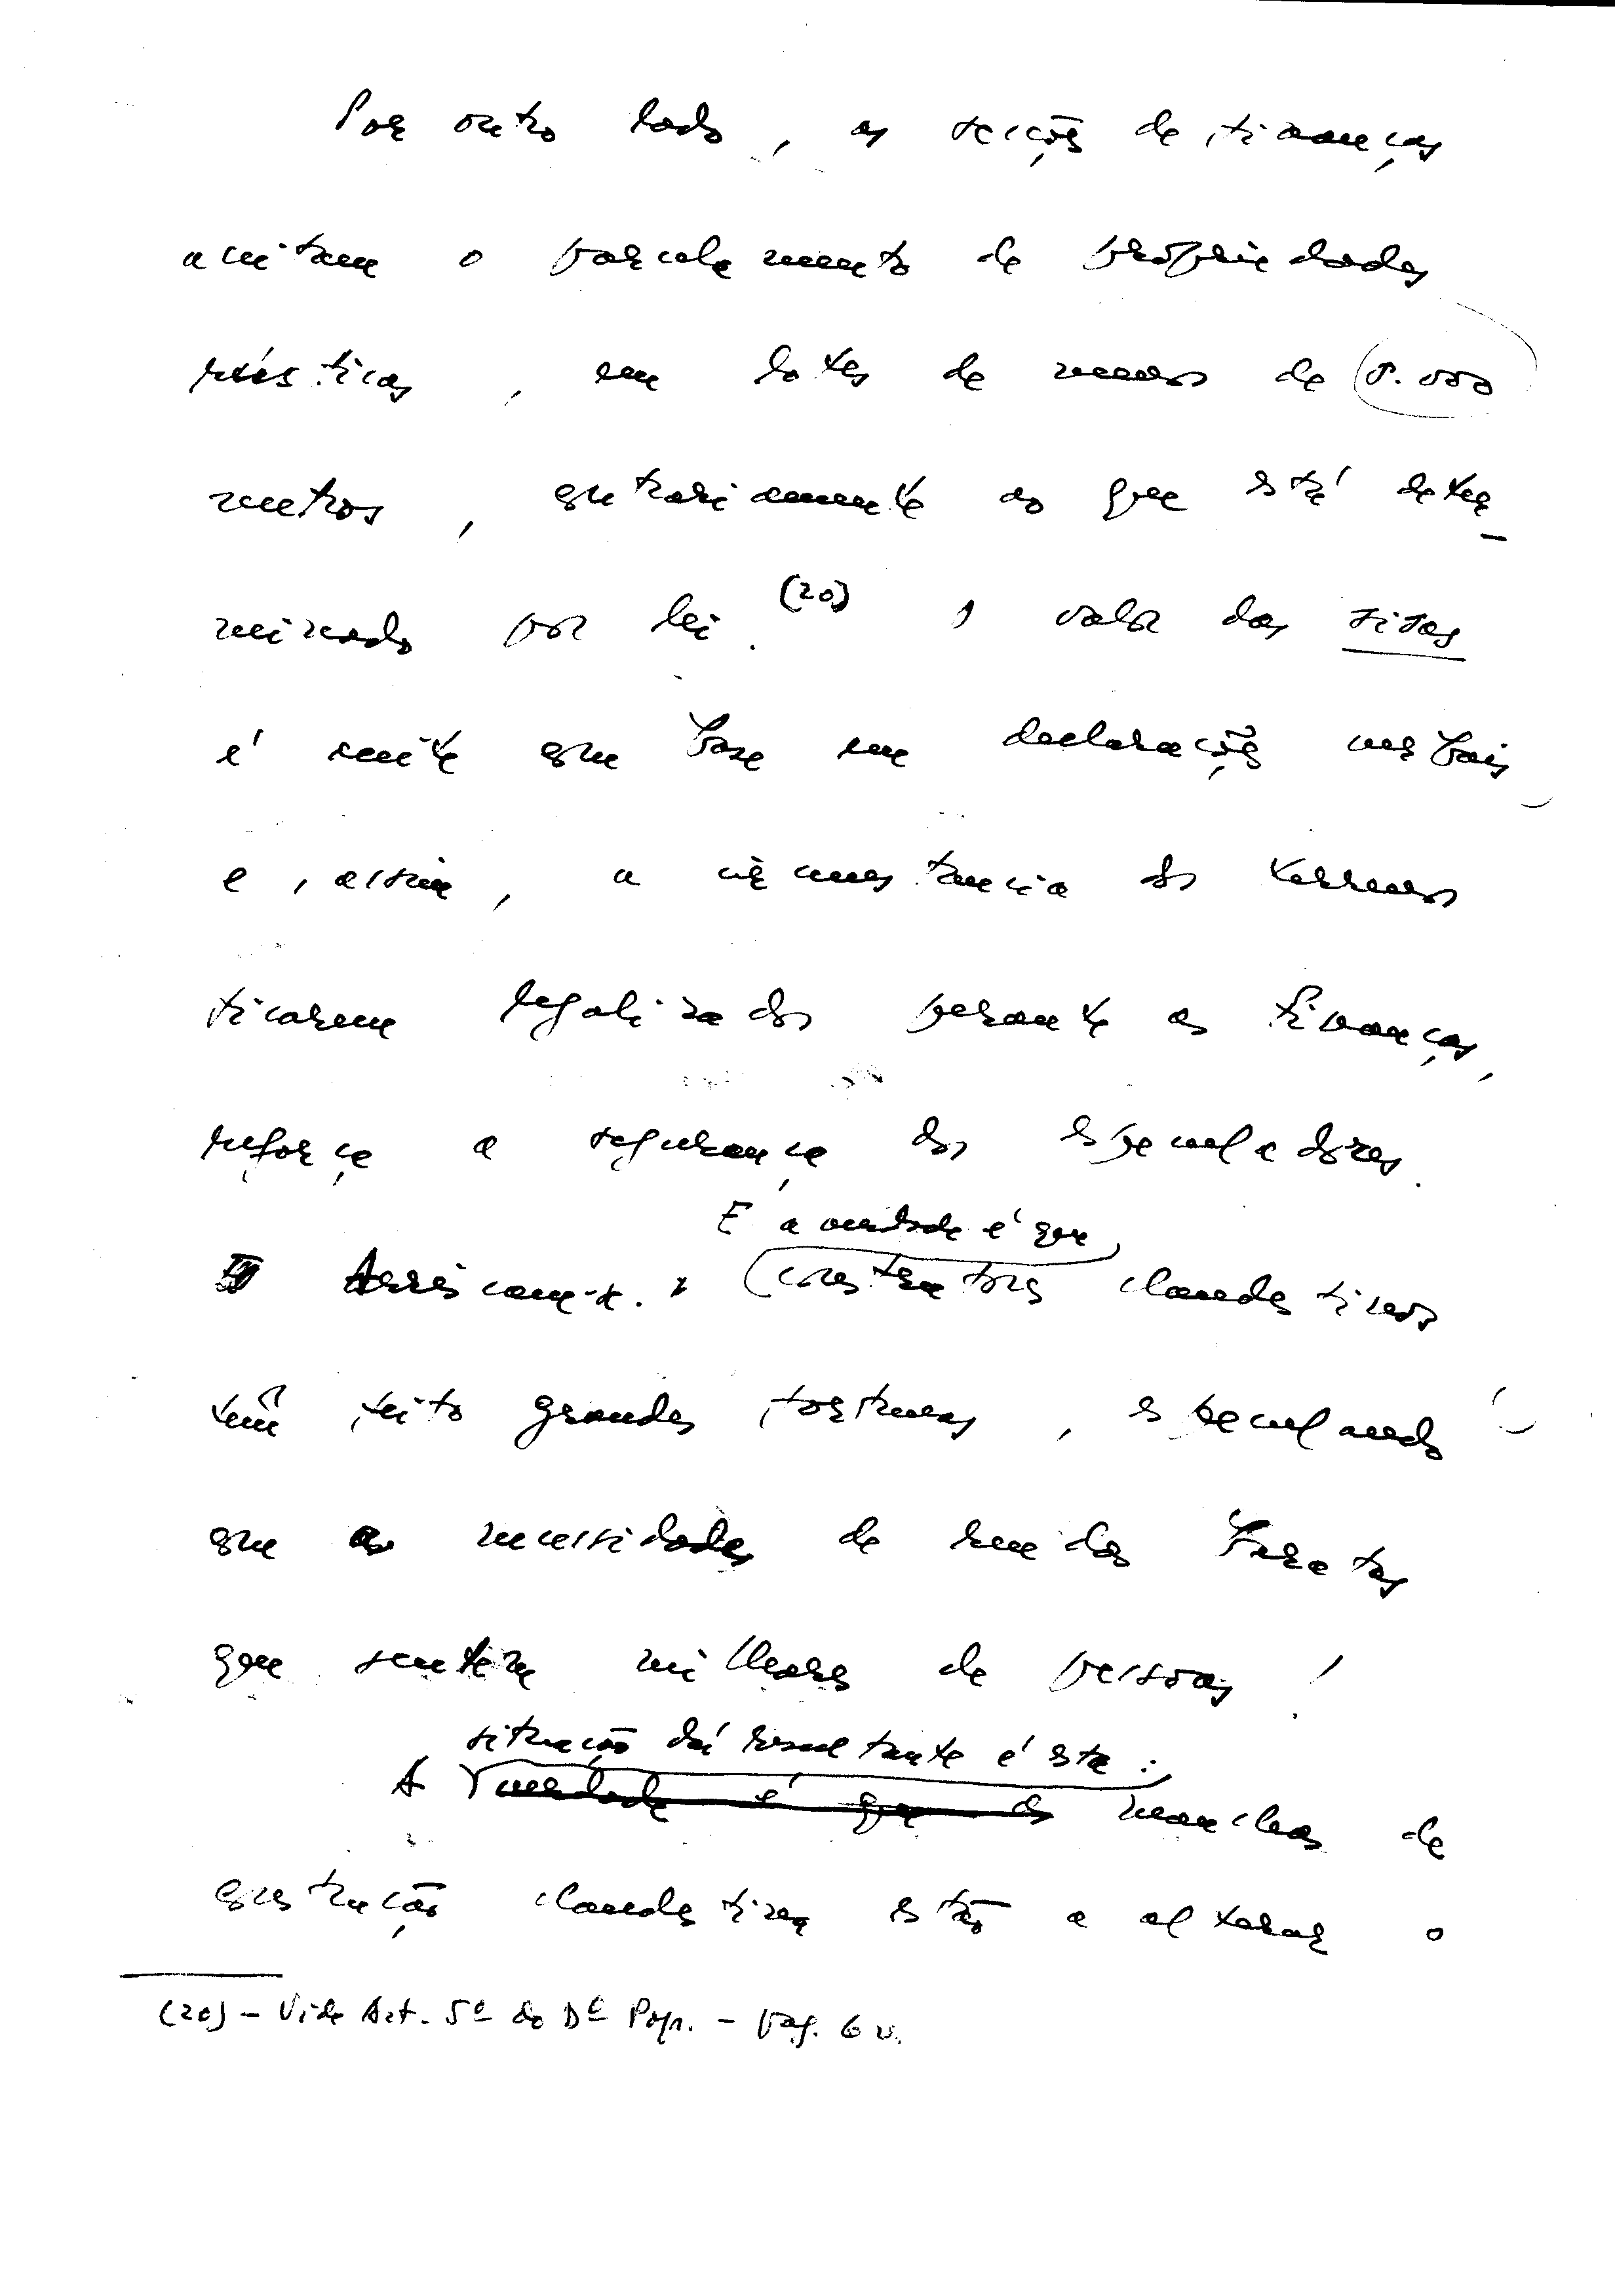 Por outro lado, as secções de finanças
aceitam o parcelamento de propriedades
rústicas, em lotes de menos de 5.000
metros, contrariamente ao que está deter-
minado por lei.(20) O valor das sisas
é aceite com base em declarações verbais
e, assim, a circunstancia dos terrenos
ficarem legalizados perante as Finanças,
reforça a segurança dos especuladores.
E a verdade é que
construtores clandestinos
têm feito grandes fortunas, especulando
com as necessidades de rendas baratas
que sentem milhares de pessoas!
situação daí resultante é esta:
A verdade é que as manchas de
construção clandestina estão a alterar o
(20) - Vide Art. 5º do Dº Pop. - pag. 6 v.